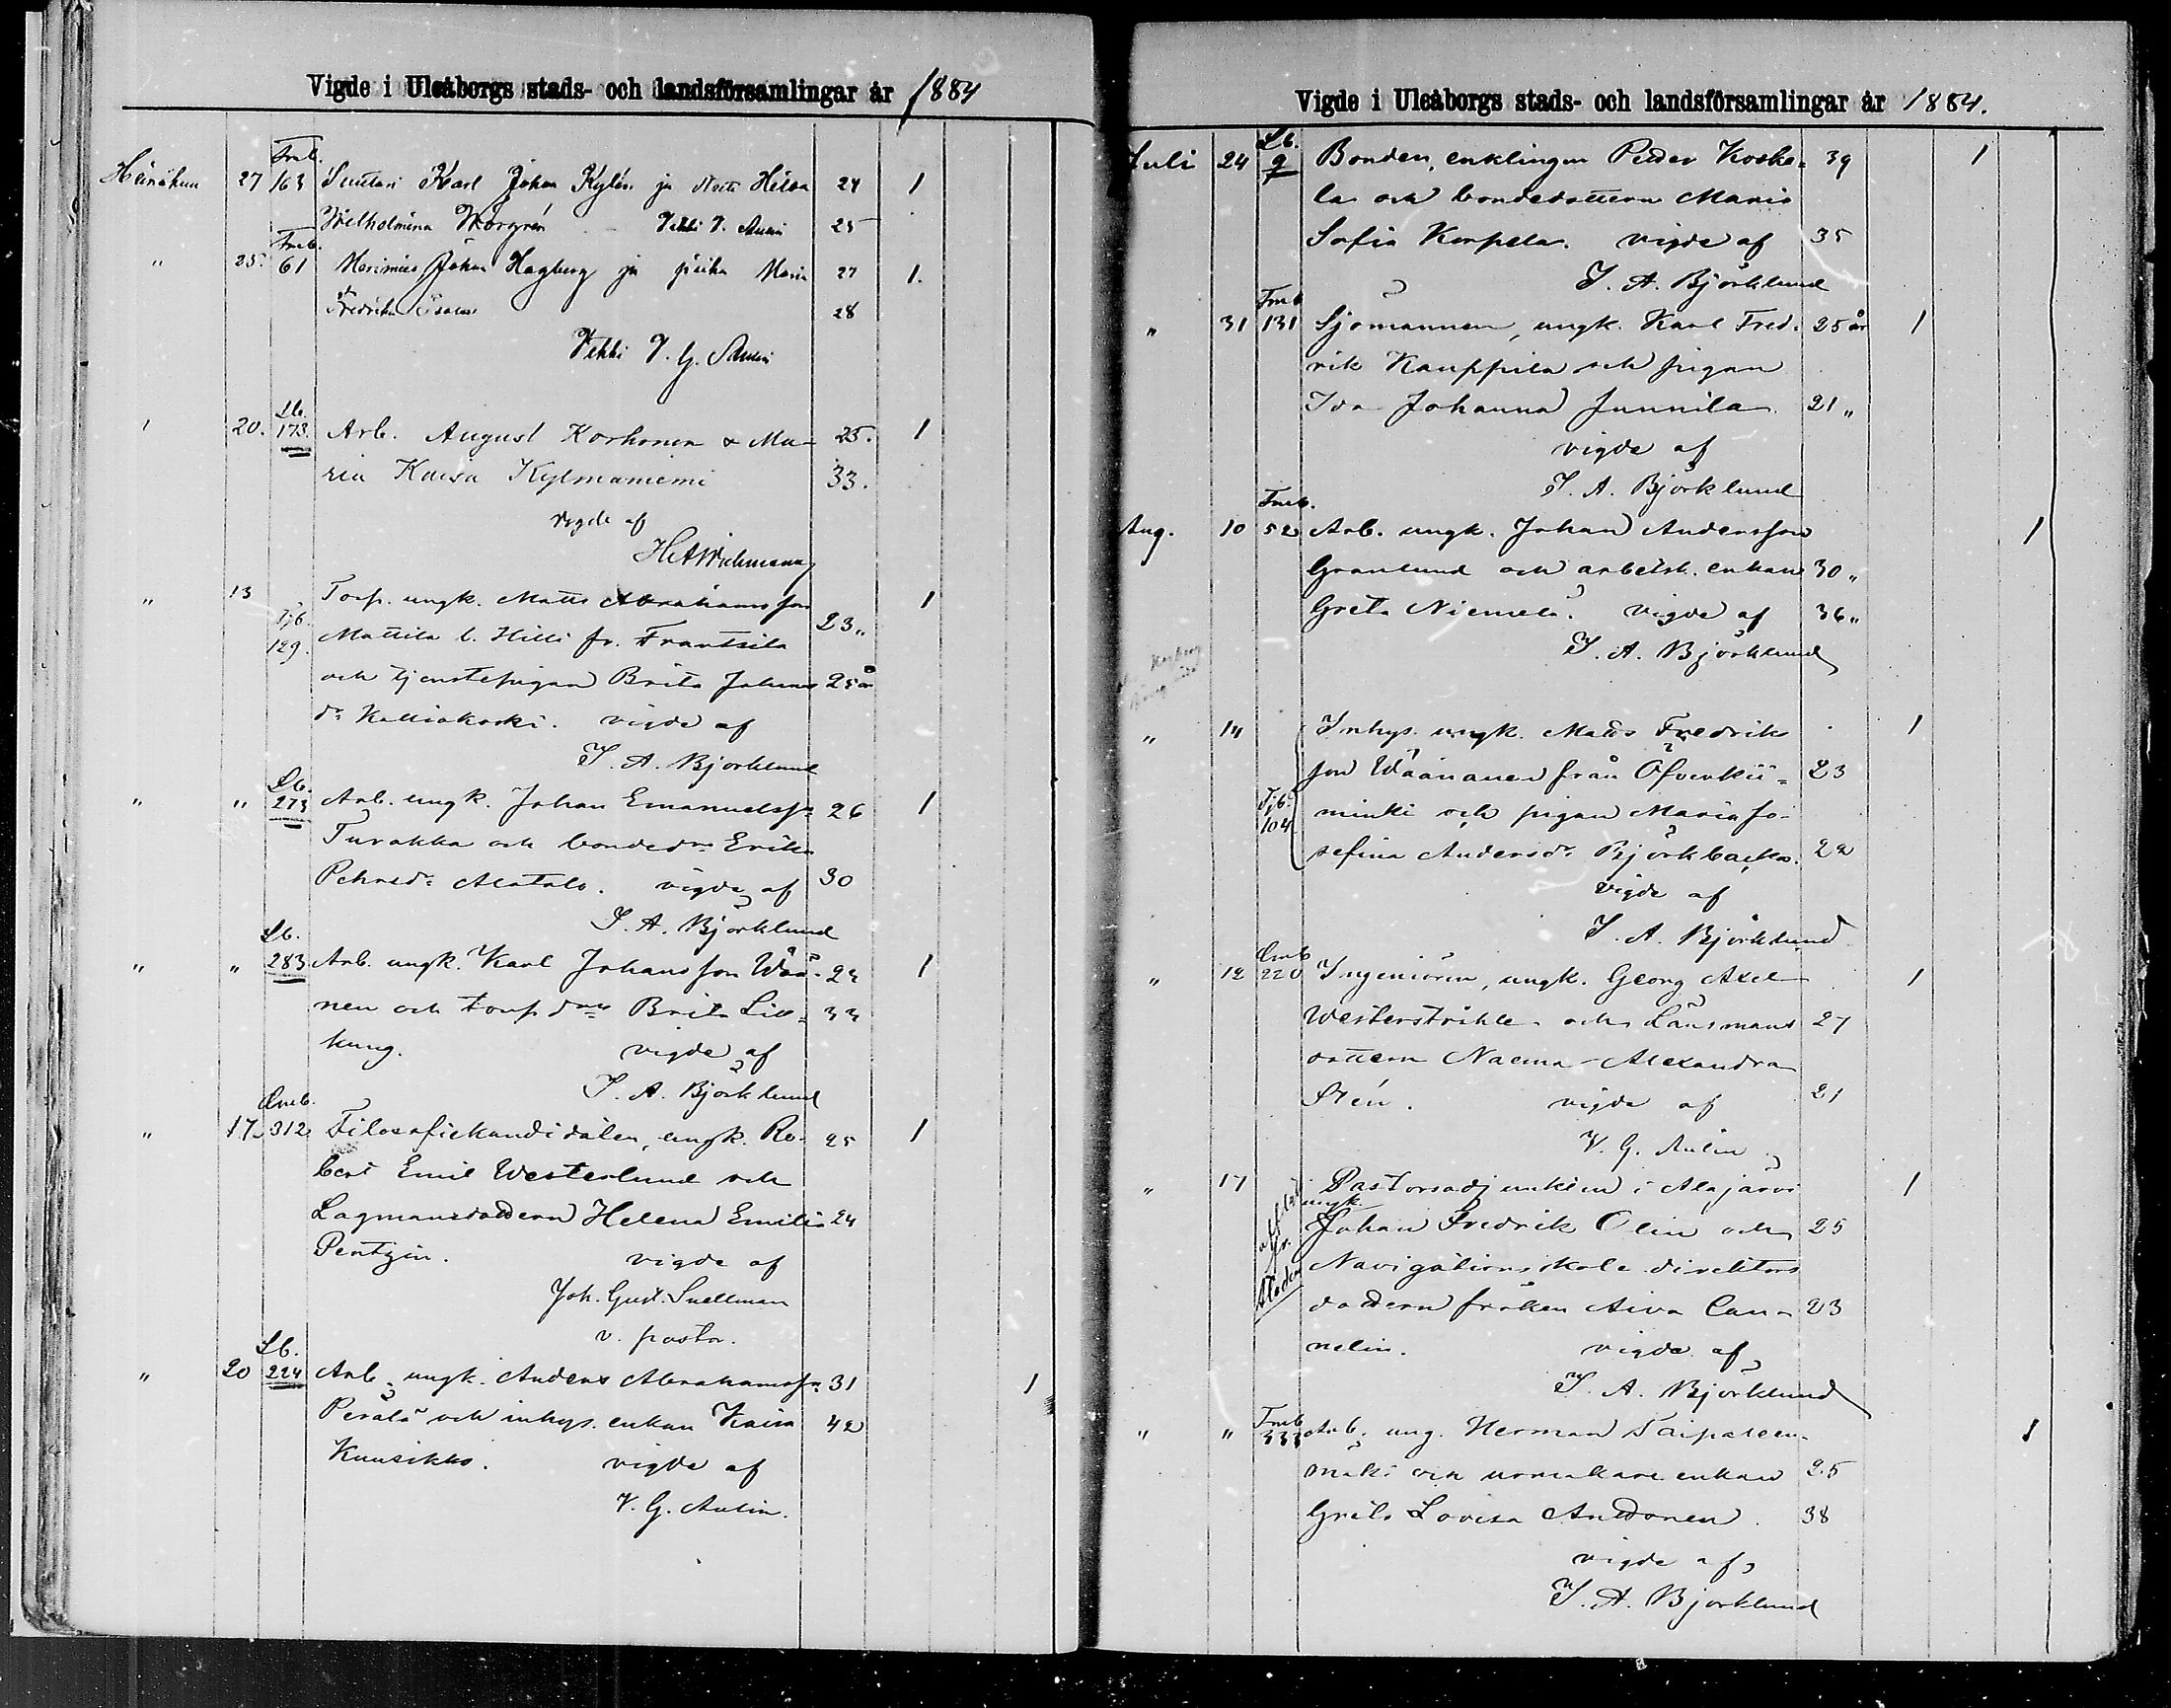 Vigde i Uleåborgs stads- och landsförsamlingar år 1884
Fmb.
Heinäkuu 27 163 Suutari Karl Johan Kylén ja Neiti Hilda 24 1
Wilhelmina Worgrén Vihki V. Aulin 25
Fmb.
" 25. 61 Merimies Johan Hagberg ja piika Maria 27 1.
Fredrika 28
Vihki V. G. Aulin
Lb.
20. 173. Arb. August Korhonen & Ma- 25. 1
ria Kaisa Kylmäniemi 33.
vigde af
H A Wichmann
" 13 Torp. ungk. Matts Abrahamsson 1
Tjb. 129. Mattila l. Hilli fr. Frantsila 23 "
och tjenstepigan Brita Johans 25 år
dr Kalliokoski. vigde af
I. A. Björklund
Lb.
" " 273 Arb. ungk. Johan Emanuelsson 26 1
Turakka och bondedrn Erika
Pehrsdr Alatalo. vigde af 30
I. A. Björklund
Lb.
" " 283. Arb. ungk. Karl Johansson Wää- 23 1
nen och torp drn Brita Liu- 33
kung. vigde af
I. A. Björklund
Cmb.
" 17. 312 Filosofiekandidaten, ungk. Ro- 25 1
bert Emil Westerlund och
Lagmansdottern Helena Emilia 24
Pentzin. vigde af
Joh. Gust. Snellman
v. pastor.
Lb.
" 20 224 Arb. ungk. Anders Abrahamsson 31 1
Perälä och inhys. enkan Kaisa 42
Kuusikko. vigde af
V. G. Aulin.
Vigde i Uleåborgs stads- och landsförsamlingar år 1884.
Lb.
Juli 24 9 Bonden, enklingen Peder Koske- 39 1
la och bondedottern Maria
Sofia Korpela. vigde af 35
I. A. Björklund
Fmb
" 31 131 Sjömannen, ungk. Karl Fred- 25 år 1
rik Kauppila och pigan
Ida Johanna Junnila. 21 "
vigde af
I. A. Björklund
Fmb.
Aug. 10 52 Arb. ungk. Johan Andersson 1
Granlund och arbetsk. enkan 30 "
Greta Niemelä. vigde af 36 "
I. A. Björklund
" 14 Inhys. ungk. Matts Fredriks 1
son Väänänen från Öfverkii- 23
Tjb. 104 minki och pigan Maria Jo-
sefina Andersdr Björkbacka. 22
vigde af
I. A. Björklund
Cmb
" 12 220 Ingeniören, ungk. Georg Axel 1
Westerstråhle och Länsmans 27
dottern Naema Alexandra
Stén. vigde af 21
V. G. Aulin
" 17 Pastorsadjunkten i Alajärvi 1
ungk.
Johan Fredrik Olin och 25
fr. Staden Navigationsskole direktors
dottern fröken Aiva Can- 23
nelin. vigde af
I. A. Björklund
Fmb
" " 333 Arb. ung. Herman Taipaleen- 1
mäki och urmakare enkan 25
Greta Lovisa Anttonen. 38
vigde af
I. A. Björklund